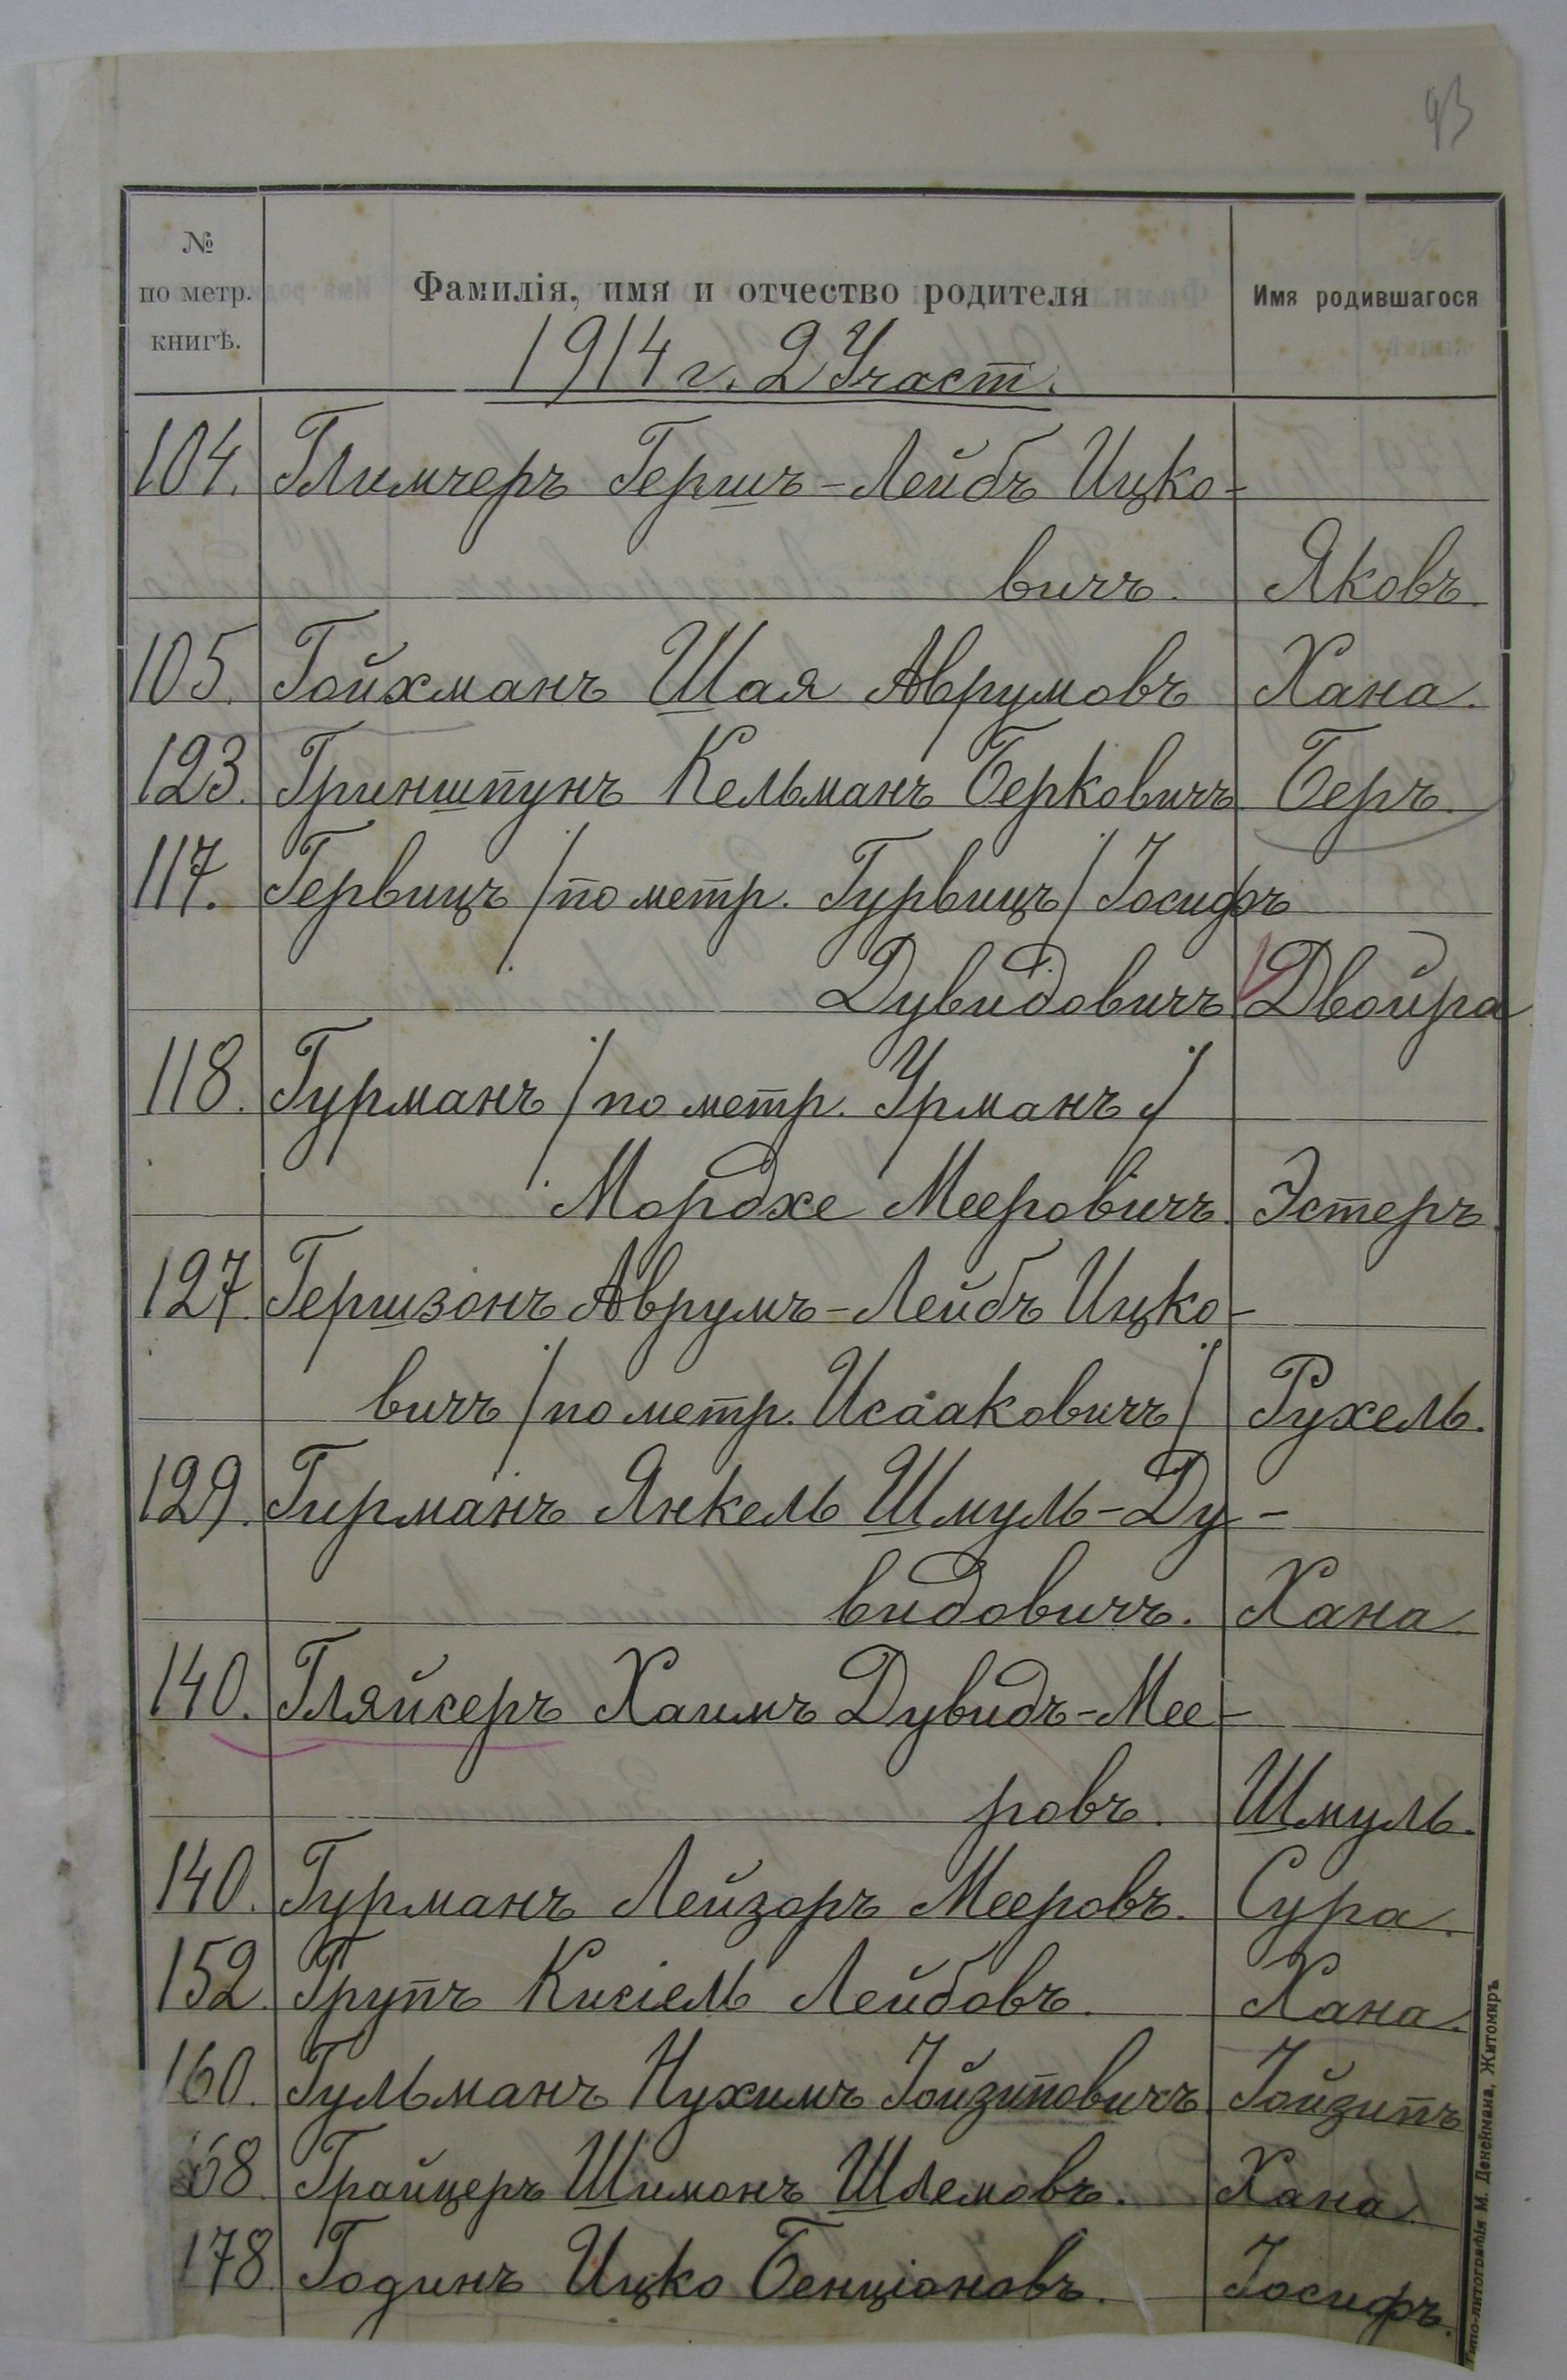 93
№ по метр. книгѣ.
Фамилія, имя и отчество родителя
Имя родившагося
1914 г. 2 Участ.
104. Глимчеръ Гершъ-Лейбъ Ицко-
вичъ. Яковъ.
105. Гойхманъ Шая Аврумовъ Хана.
123. Гриншпунъ Кельманъ Берковичъ Беръ.
117. Гервицъ /по метр. Гурвицъ/ Іосифъ
Дувидовичъ Двойра
118. Гурманъ /по метр. Урманъ/
Мордхе Мееровичъ. Эстеръ.
127. Гершзонъ Аврумъ-Лейбъ Ицко-
вичъ /по метр. Исааковичъ/ Рухель.
129. Гирманъ Янкель Шмуль-Ду-
видовичъ. Хана.
140. Гляйсеръ Хаимъ Дувидъ-Мее-
ровъ. Шмуль.
140. Гурманъ Лейзоръ Мееровъ. Сура.
152. Групъ Кисіель Лейбовъ. Хана.
160. Гульманъ Нухимъ Іойзиповичъ Іойзипъ
168. Грайцеръ Шимонъ Шлемовъ. Хана.
178. Годинъ Ицко Бенціоновъ. Іосифъ.
Типо-литографія М. Дененмана, Житомиръ